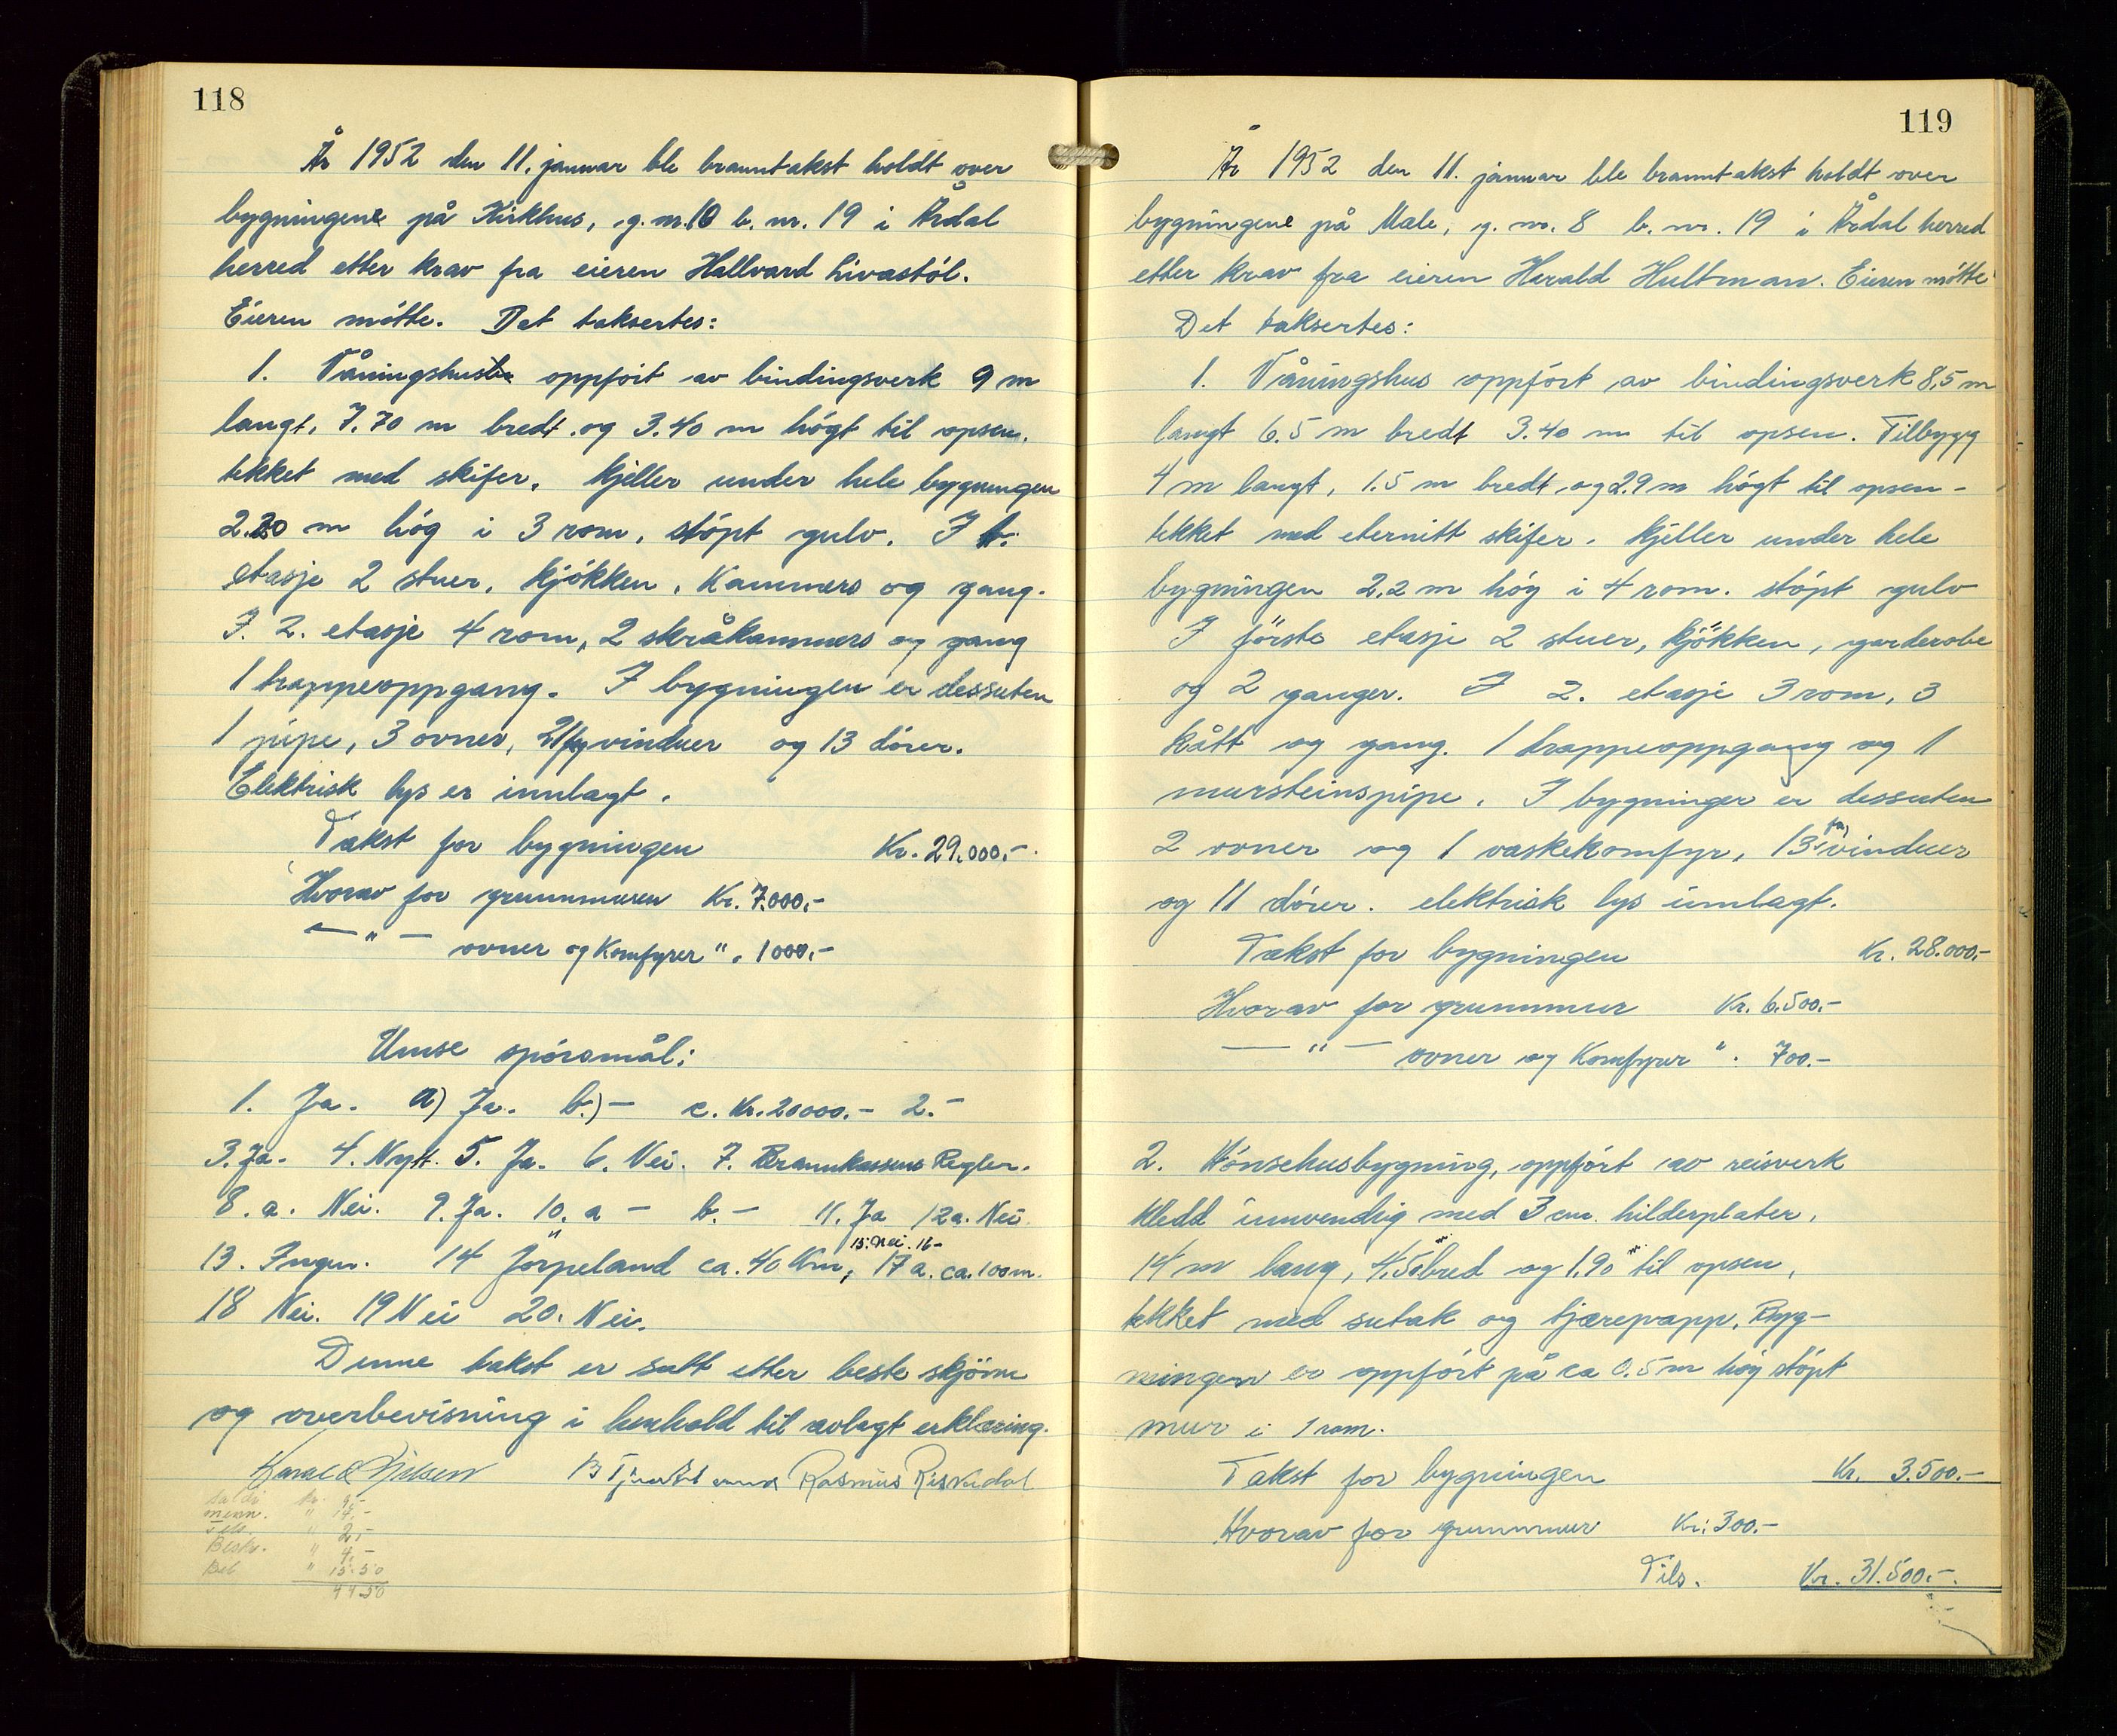 118
År 1952 den 11. januar ble branntakst holdt over
bygningene på Kirkhus, g. nr. 10 b. nr. 19 i Årdal
herred etter krav fra eieren Hallvard Livastöl.
Eieren mötte. Det taksertes:
1. Våningshus oppfört av bindingsverk 9 m
langt, 7.70 m bredt og 3.40 m högt til opsen.
tekket med skifer. Kjeller under hele bygningen
2.20 m hög i 3 rom, stöpt gulv. I 1.
etasje 2 stuer, kjökken, kammers og gang.
I. 2. etasje 4 rom, 2 skråkammers og gang
1 trappeoppgang. I bygningen er dessuten
1 pipe, 3 ovner, 21 vinduer og 13 dörer.
Elektrisk lys er innlagt.
Takst for bygningen Kr. 29.000.-
Hvorav for grunnmuren Kr. 7.000.-
— " — ovner og Komfyrer ". 1000.-
Ymse spörsmål:
1. Ja. a) Ja. b.) — c. Kr. 20000.- 2.-
3. Ja. 4. Nytt. 5. Ja. 6. Nei. 7. Brannkassens Regler.
8. a. Nei. 9. Ja. 10. a - b. - 11. Ja 12a. Nei
15. Nei. 16-
13. Ingen. 14 Jörpeland ca. 40 Km, 17 a. ca. 100 m.
18 Nei. 19 Nei 20. Nei.
Denne takst er satt etter beste skjönn
og overbevisning i henhold til avlagt erklæring.
Harald Nilsen Rasmus Riskedal
menn. " 14.-
" 2.-
Beskr. " 4.-
Bil " 15.50
44.50
119
År 1952 den 11. januar ble branntakst holdt over
bygningene på Mæle, g. nr. 8 b. nr. 19 i Årdal herred
etter krav fra eieren Harald Hultman. Eieren mötte
Det taksertes:
1. Våningshus oppfört av bindingsverk 8,5 m
langt 6.5 m bredt 3.40 m til opsen. Tilbygg
4 m langt, 1.5 m bredt og 2.9 m högt til opsen -
tekket med eternitt skifer. Kjeller under hele
bygningen 2.2 m hög i 4 rom. stöpt gulv
I förste etasje 2 stuer, kjökken, garderobe
og 2 ganger. I 2. etasje 3 rom, 3
kått og gang. 1 trappeoppgang og 1
mursteinspipe. I bygninger er dessuten
2 ovner og 1 vaskekomfyr, 13 vinduer
og 11 dörer. elektrisk lys innlagt.
Takst for bygningen Kr. 28.000.-
Hvorav for grunnmur Kr. 6.500.-
— " — ovner og Komfyrer ". 700.-
2. Hönsehusbygning, oppfört av reisverk
kledd innvendig med 3 cm. hilderplater,
14 m lang, 4,50 m bred og 1.90 m til opsen,
tekket med sutak og tjærepapp. Byg-
ningen er oppfört på ca 0.5 m höy stöpt
mur i 1 rom.
Takst for bygningen Kr. 3.500.-
Hvorav for grunnmur Kr. 300.-
Tils. Kr. 31.500.-